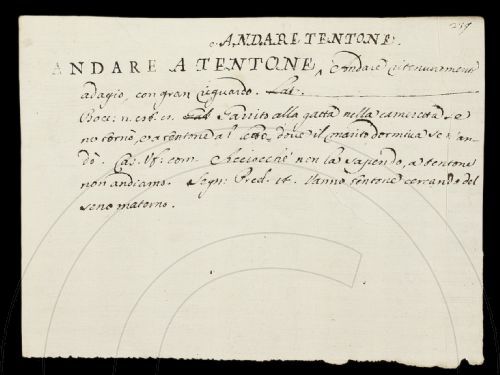 239
ANDARE TENTONE.
ANDARE A TENTONE, è andare ritenutamente
adagio, con gran riguardo. Lat.
Bocc: n. est. in. Partito alla gatta nella camicetta se
ne tornò, e a tentone al letto, dove il marito dormiva se n'an-
dò. Cas. lf: com e acciocchè non la sapendo, a tentone
non andiamo. Segn: Pred. 1f. Vanno tentone cercando del
seno materno.